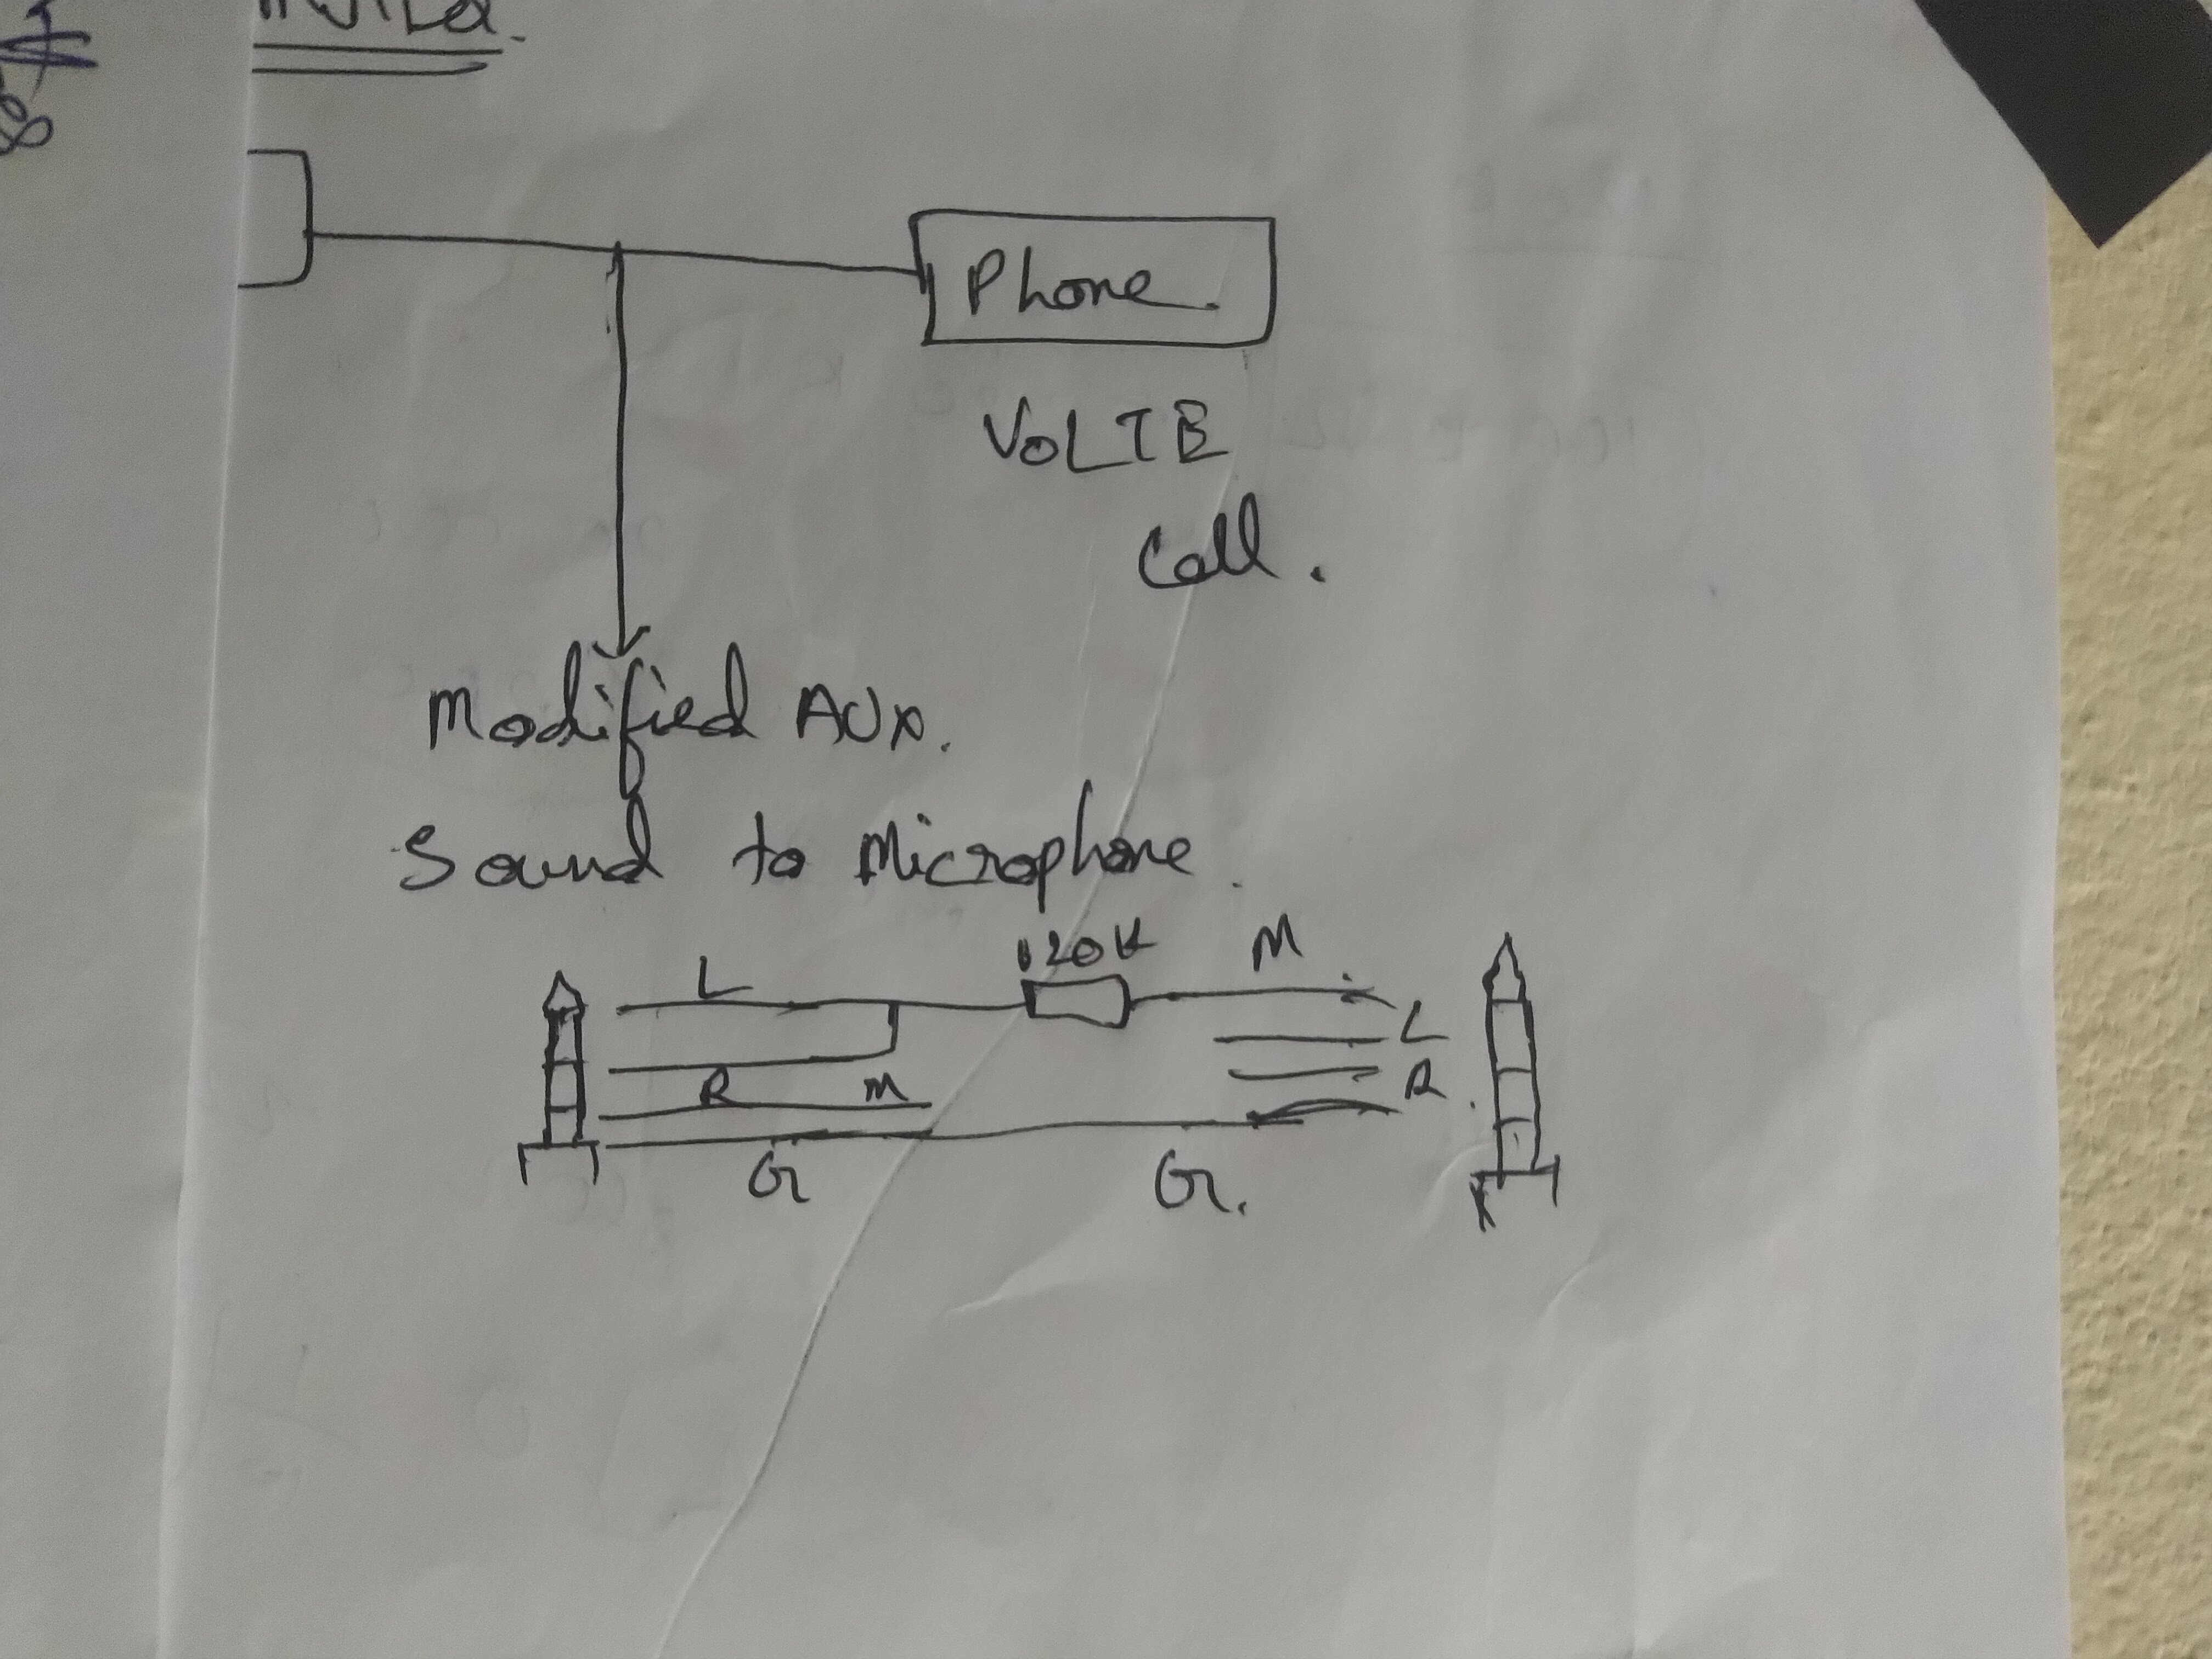 Phone
VoLTE
Call.
Modified AUX.
Sound to Microphone.
L
R
M
G
M
L
R
G.